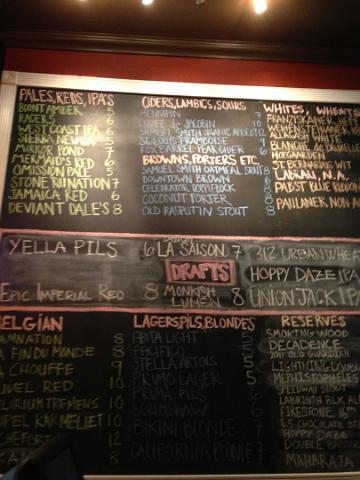 PALES, REDS, IPA'S
BOONT AMBER 5
RACER 5 6
WEST COAST IPA 6
SIERRA NEVADA 5
MIRROR POND 7
MERMAID'S RED 6
OMISSION PALE 5
STONE RUINATION 7
JAMAICA RED 6
DEVIANT DALE'S 8
CIDERS, LAMBICS, SOURS
HENNEPIN 7
CUVEE de JACOBIN 10
SAMUEL SMITH ORGANIC APRICOT 12
ST. LOUIS FRAMBOISE 9
FOX BARREL PEAR CIDER 6
BROWNS, PORTERS ETC.
SAMUEL SMITH OATMEAL STOUT 8
DOWNTOWN BROWN
CELEBRATOR DOPPLEBOCK 8
COCONUT PORTER 8
OLD RASPUTIN STOUT 8
WHITES, WHEATS
FRANZISKANER
WEIHENSTEPHANER
ALLAGASH WHITE
BLANCHE de BRUXELLES
HOEGAARDEN
ST. BERNARDUS WIT
CABRAL, N.A.
PABST BLUE RIBBON
PAULANER NON A
YELLA PILS 6
LA SAISON 7
312 URBAN WHEAT
DRAFTS
HOPPY DAZE IPA
EPIC IMPERIAL RED 8
MONKISH LUMEN 8
UNION JACK IPA
BELGIAN
DAMNATION 8
LA FIN DU MONDE 8
LA CHOUFFE 9
DUVEL RED 10
DELIRIUM TREMENS 10
TRIPEL KARMELIET 10
ROCHEFORT 12
8
LAGERS, PILS, BLONDES
ABITA LIGHT 5
PACIFICO 5
STELLA ARTOIS 5
PRIMO LAGER 5
PRIMA PILS 6
SCRIMSHAW 6
BIKINI BLONDE 7
CALIFORNIA BLONDE 7
RESERVES
SMOKING WOOD
DECADENCE
2011 OLD GUARDIAN
LIGHTNING DOUBLE
MEPHISTOPHELES
SPEEDWAY STOUT
LABRINTH BLK ALE
FIRESTONE 16TH
6.5 CHOCOLATE ST
HOPPY DAZE
DOUBLE BASTARD
MAHARAJA